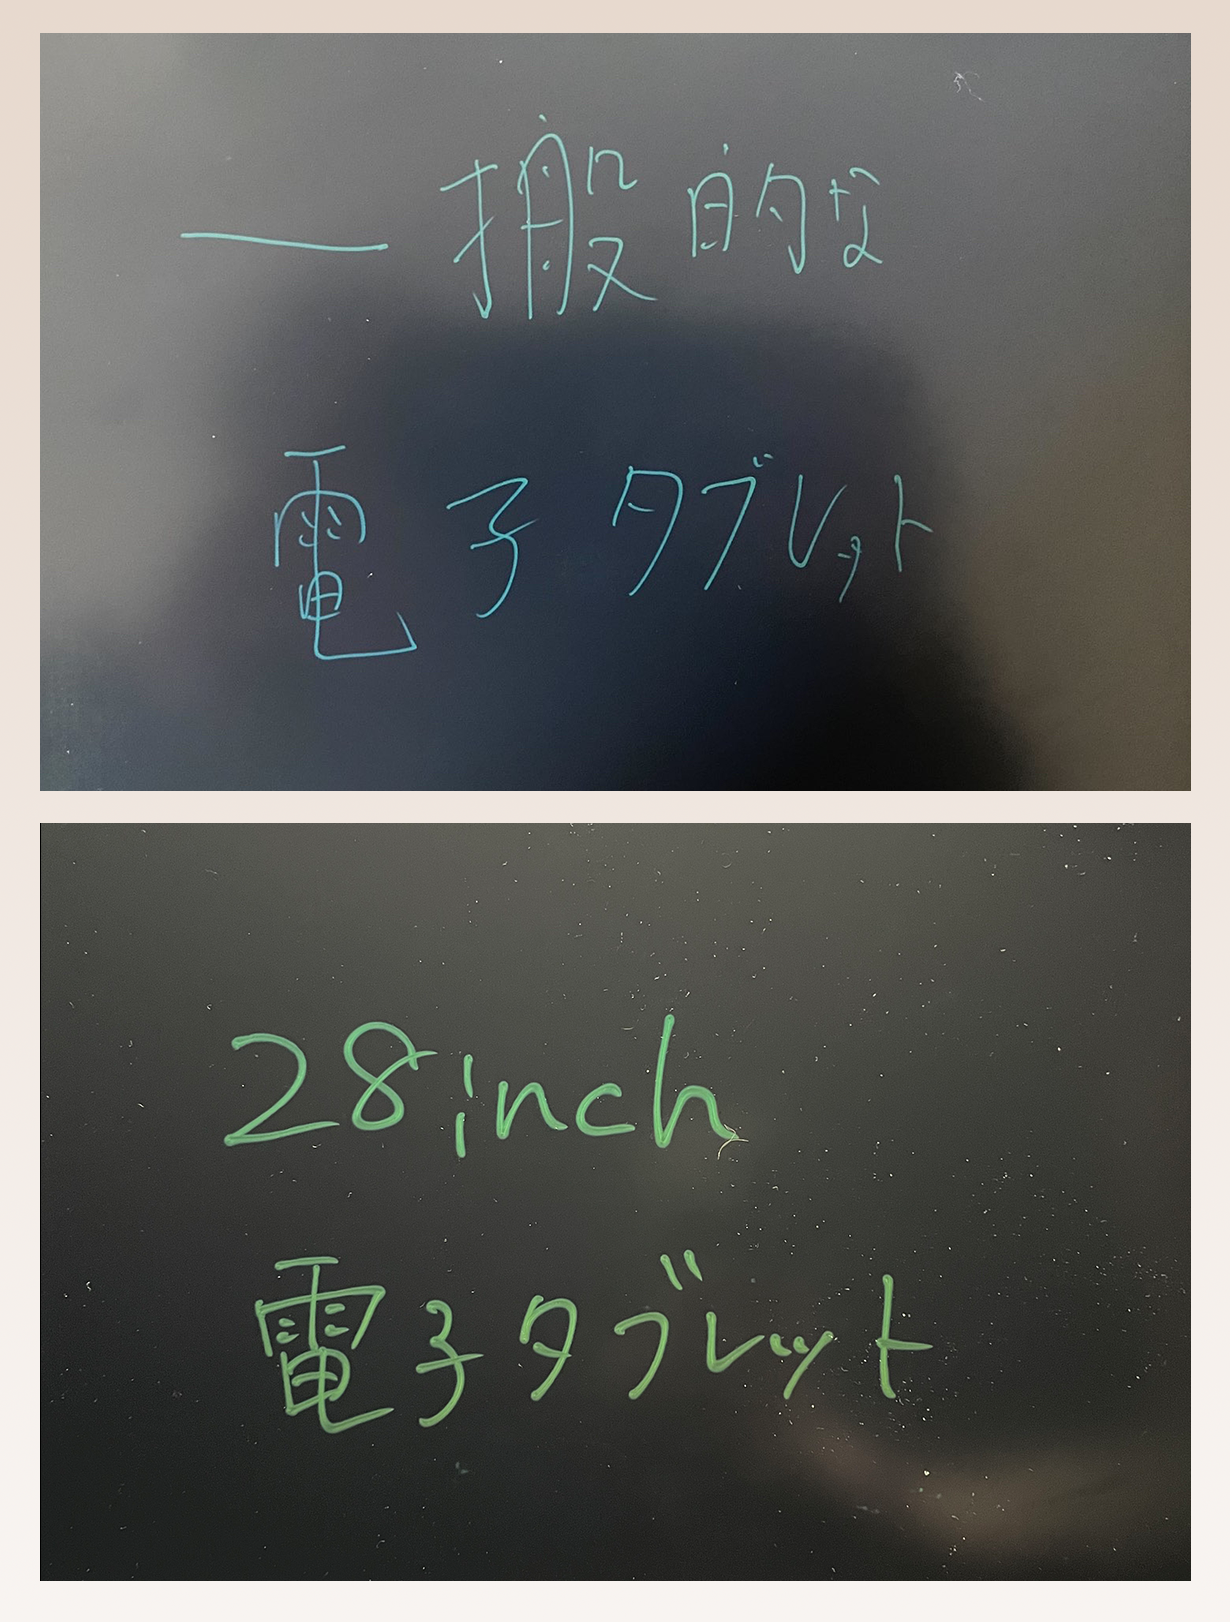 一搬的な
電子タブレット
28inch
電子タブレット